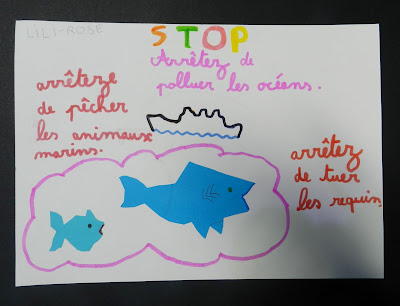 LILI-ROSE
STOP
Arrêtez de
polluer les océens.
arrêteze
de pêcher
les animaux
marins.
arrêtez
de tuer
les requins